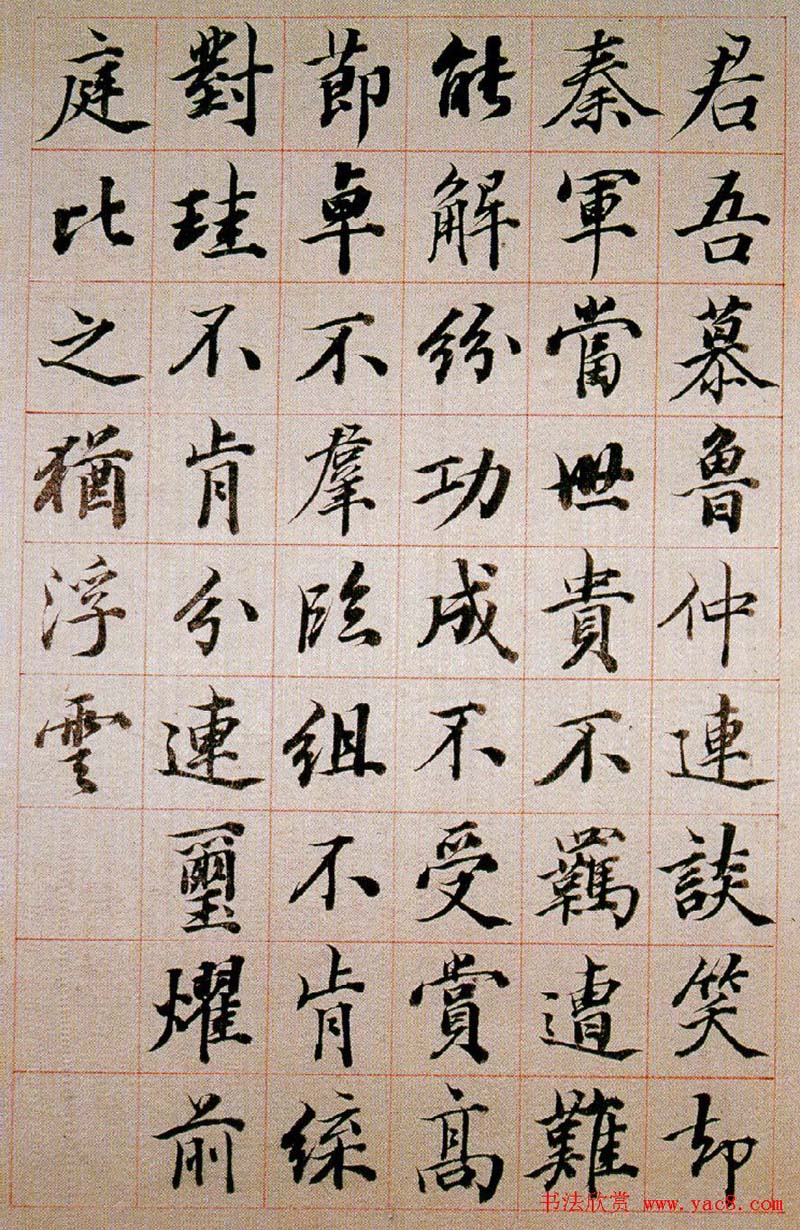 君吾慕魯仲連談笑却
秦軍當世貴不羈遭難
能解紛功成不受賞高
節卓不羣臨組不肯緤
對珪不肯分連璽燿前
庭比之猶浮雲
书法欣赏 www.yac8.com